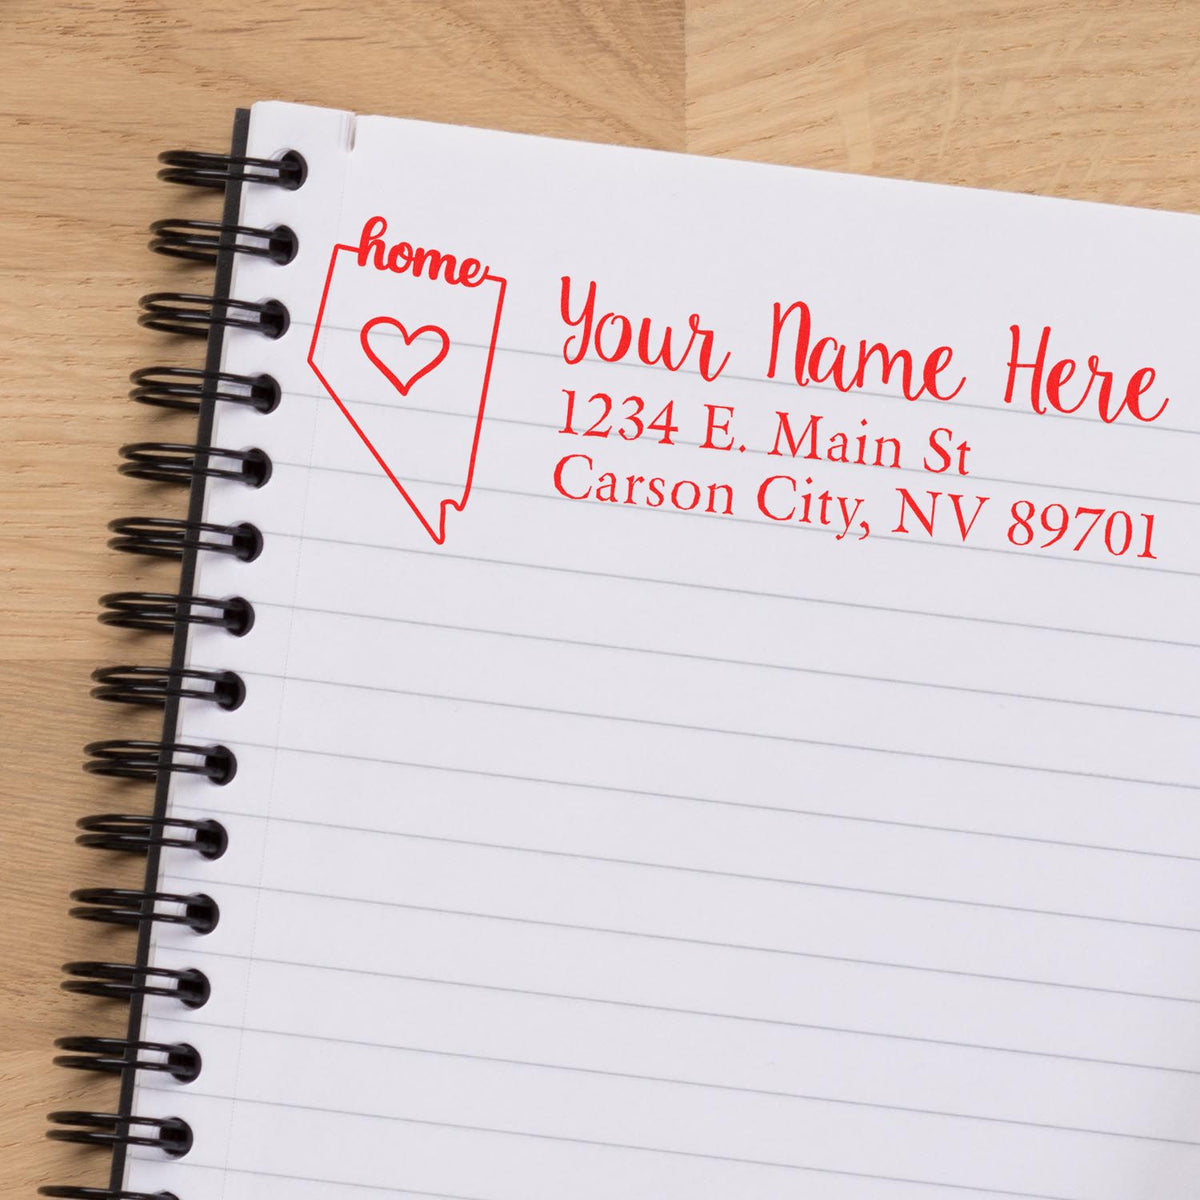 home
Your Name Here
1234 E. Main St
Carson City, NV 89701